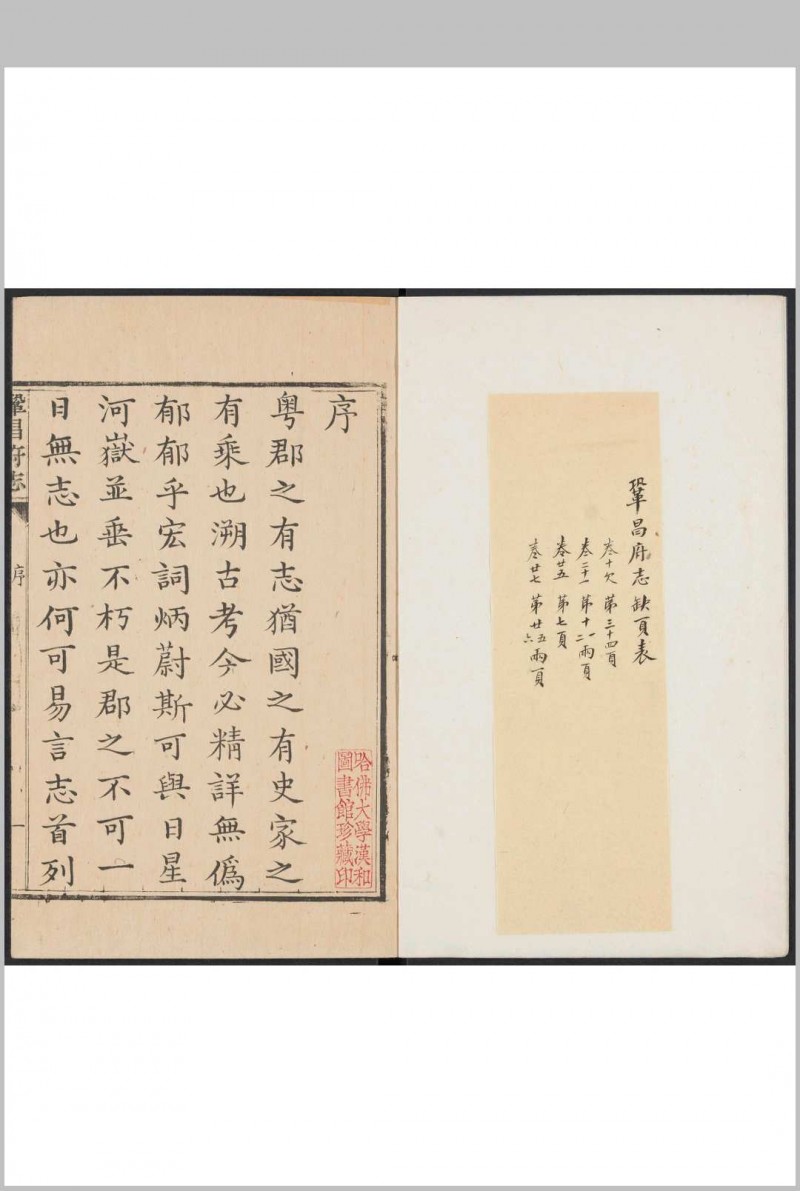 鞏昌府志缺頁表
卷十欠 第三十四頁
卷二十一 第十一二兩頁
卷廿五 第七頁
卷廿七 第廿五六兩頁
序
粤郡之有志猶國之有史家之
有乘也溯古考今必精詳無僞
郁郁乎宏詞炳蔚斯可與日星
河嶽並垂不朽是郡之不可一
日無志也亦何可易言志首列
鞏昌府志
序
一
哈佛大學漢和
圖書館珍藏印